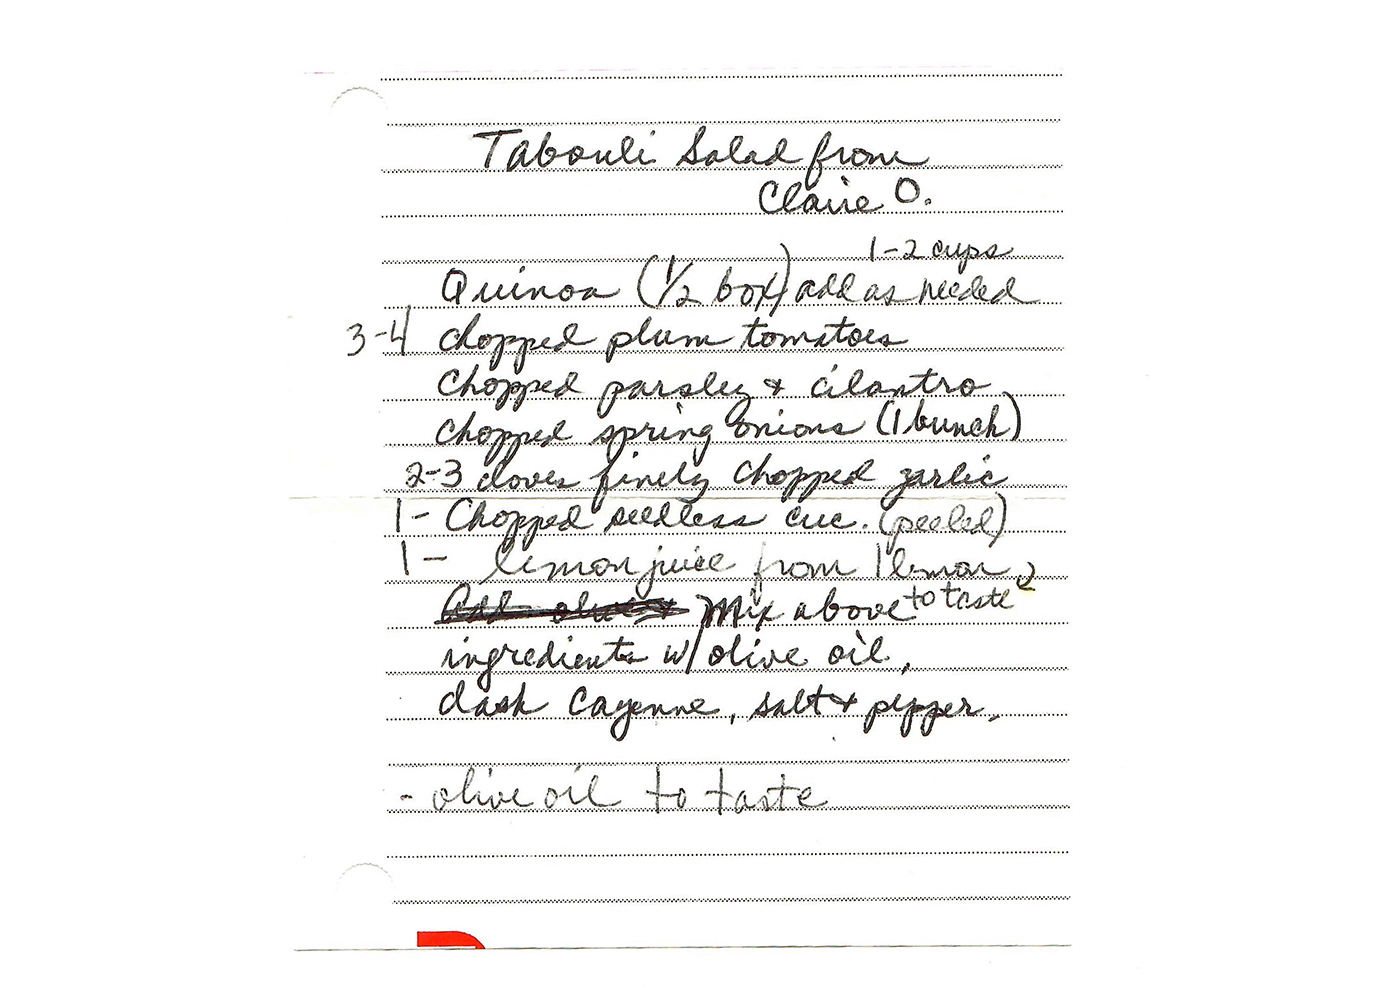 Tabouli Salad from
Claire O.
1-2 cups
Quinoa (1/2 box) add as needed
3-4 chopped plum tomatoes
chopped parsley & cilantro
chopped spring onions (1 bunch)
2-3 cloves finely chopped garlic
1- Chopped seedless cuc. (peeled)
1- lemon juice from 1 lemon
Mix above to taste
ingredients w/ olive oil,
dash Cayenne, salt & pepper.
- olive oil to taste